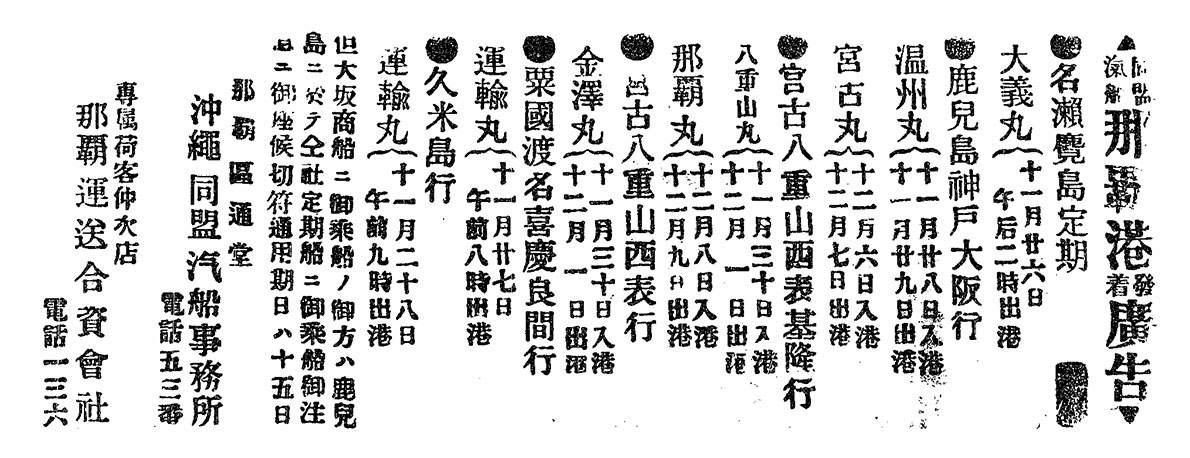 ▲同盟汽船那覇港発着廣告▼
●名瀬覽島定期
大義丸
十一月廿六日
午后二時出港
●鹿兒島神戸大阪行
温州丸
十一月廿八日入港
十一月廿九日出港
宮古丸
十二月六日入港
十二月七日出港
●宮古八重山西表基隆行
八重山丸
十一月三十日入港
十二月一日出港
那覇丸
十二月八日入港
十二月九日出港
●宮古八重山西表行
金澤丸
十一月三十日入港
十二月一日出港
●粟國渡名喜慶良間行
運輸丸
十一月廿七日
午前八時出港
●久米島行
運輸丸
十一月二十八日
午前九時出港
但大坂商船ニ御乘船ノ御方ハ鹿兒
島ニ於テ仝社定期船ニ御乘船御注
意ニ御座候切符通用期日ハ十五日
那覇區通堂
沖繩同盟汽船事務所
電話五三番
専属荷客仲次店
那覇運送合資會社
電話一三六